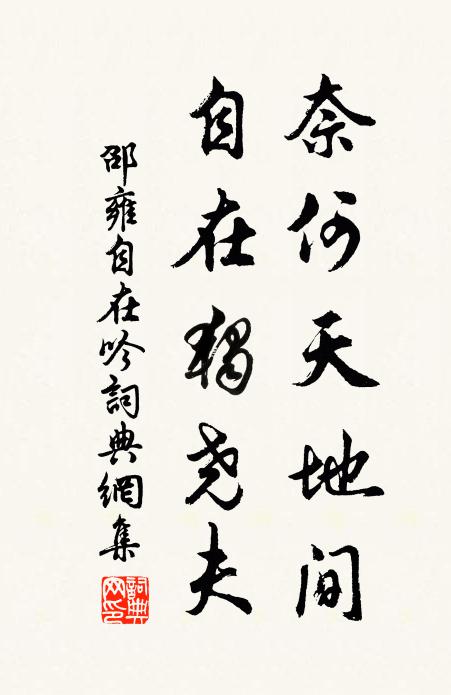 奈何天地间
自在独尧夫
邵雍自在吟詞典網集
詞典网印